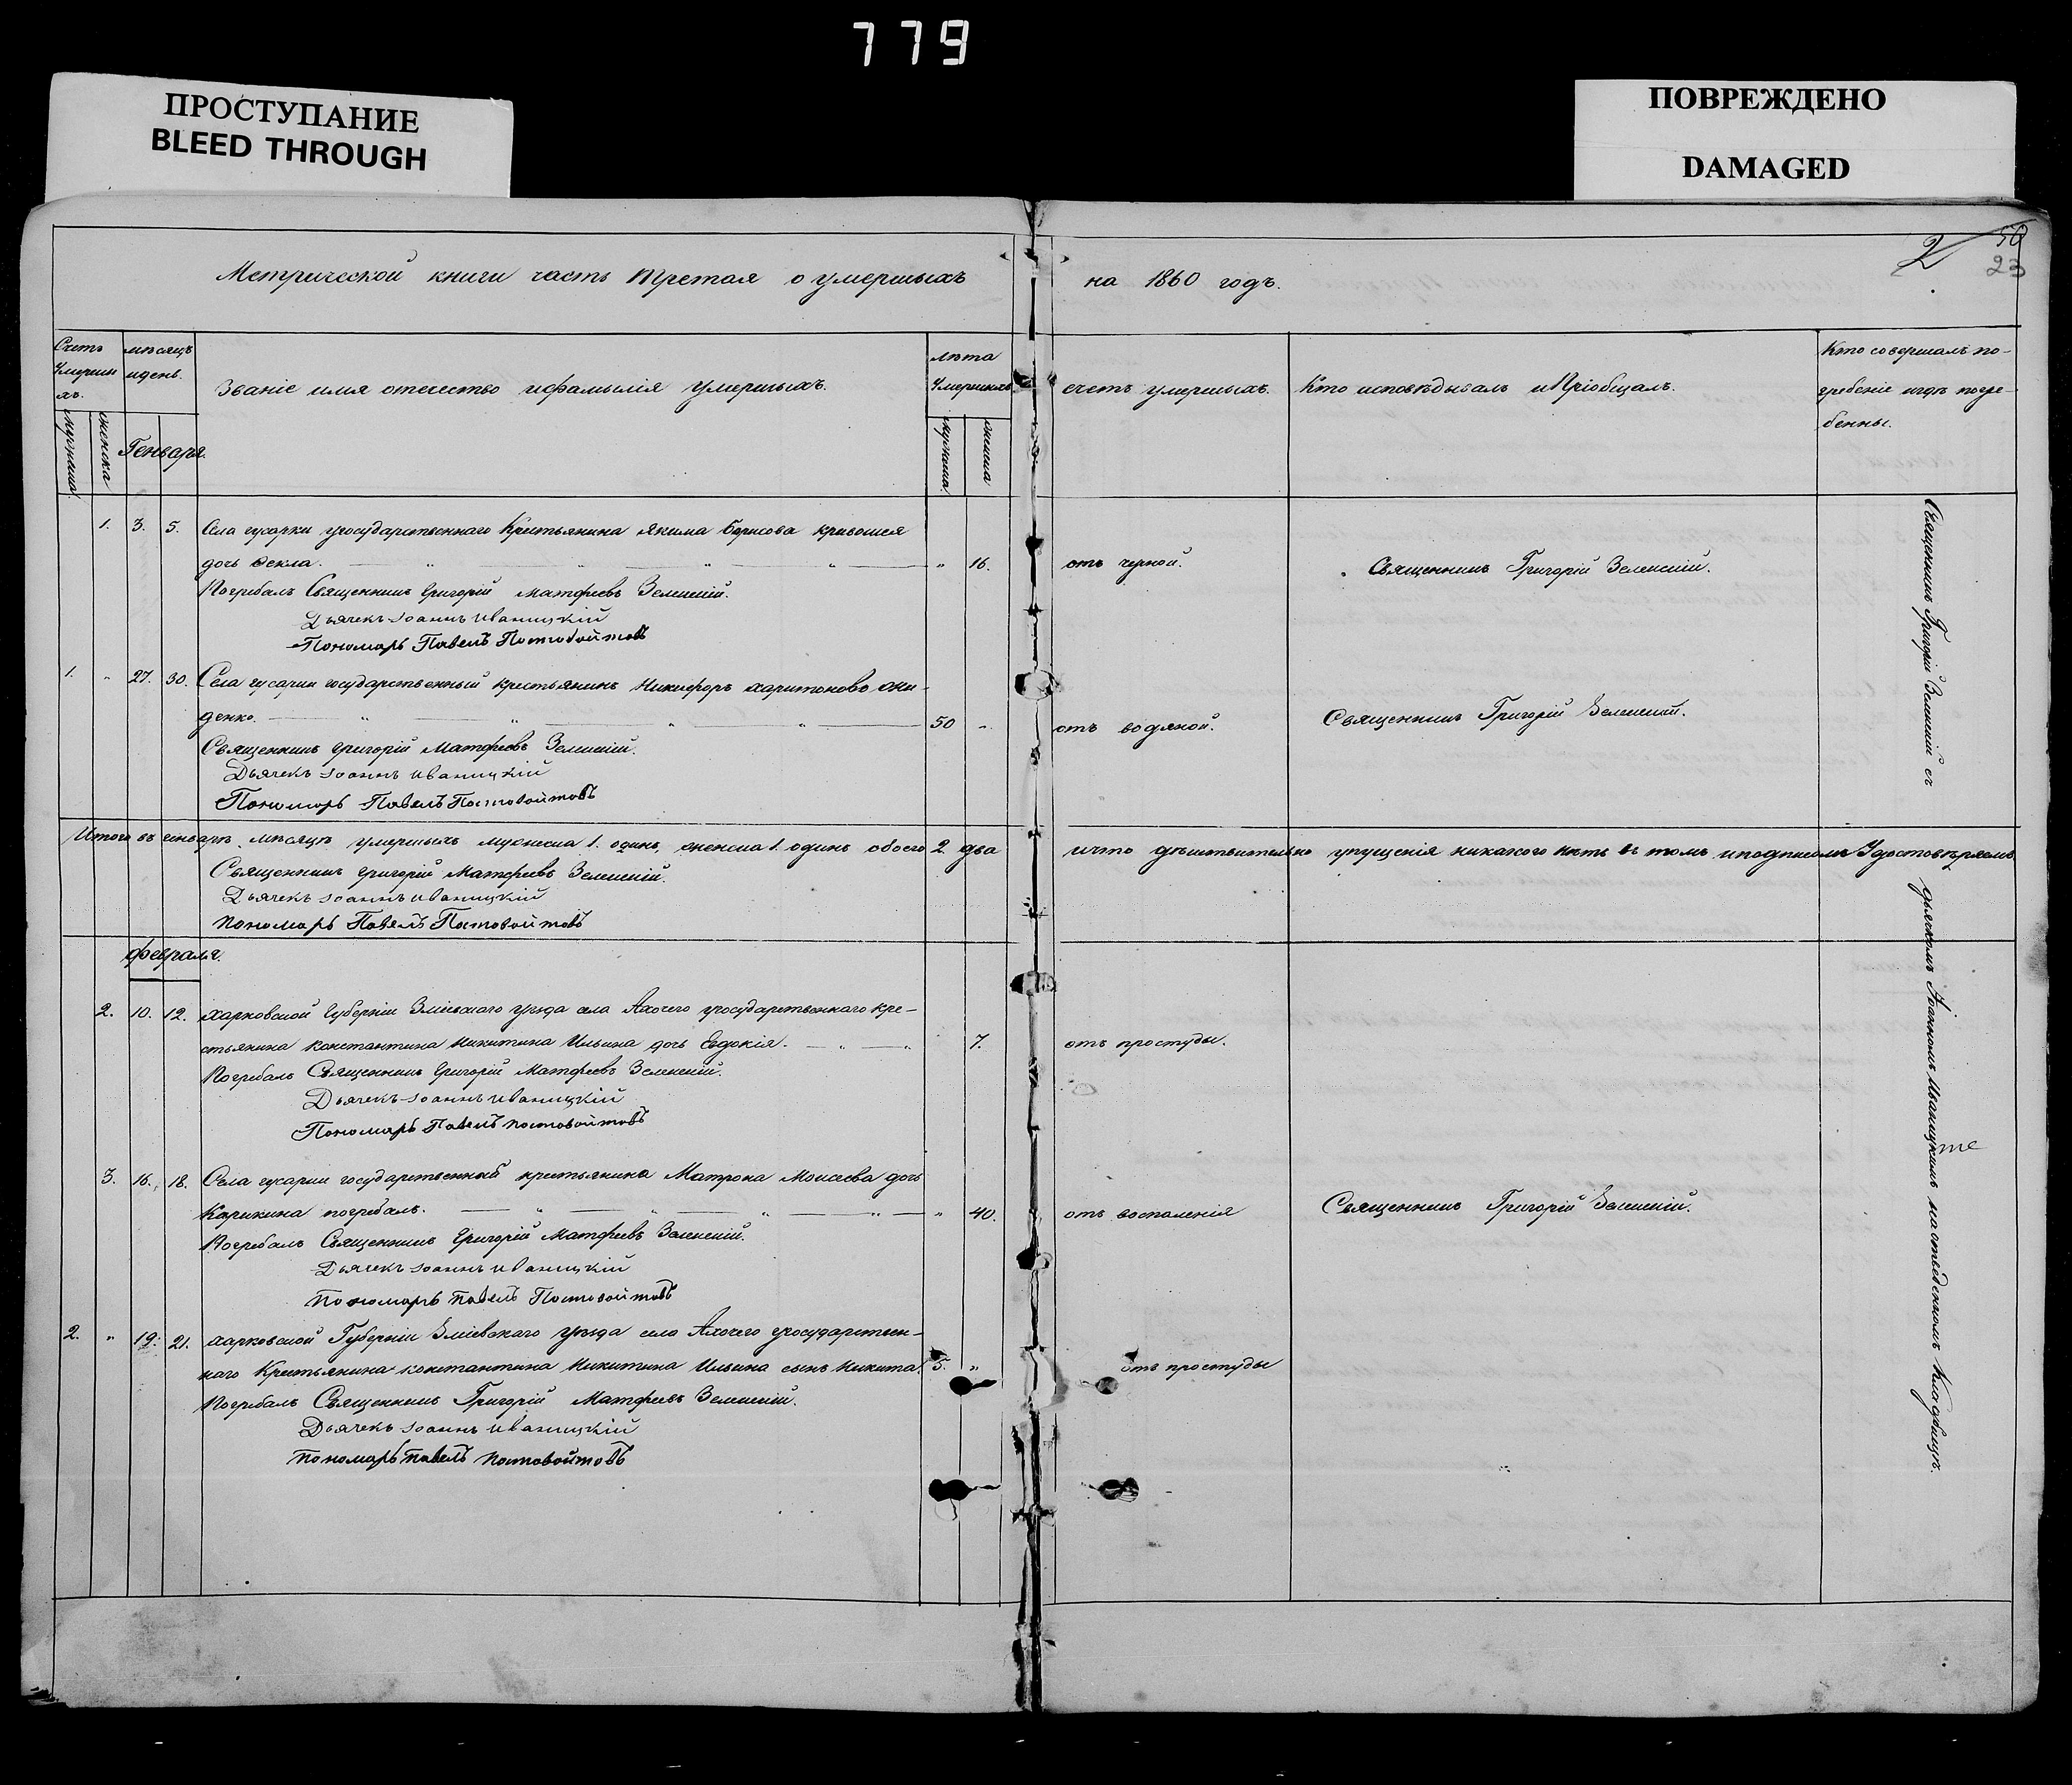 779
ПРОСТУПАНИЕ
BLEED THROUGH
ПОВРЕЖДЕНО
DAMAGED
2 56
23
Метрической книги часть третая о умершыхъ на 1860 годъ.
Счетъ умершихъ.
мѣсяцъ и день.
Званіе имя отечество ифамылія умершыхъ.
лѣта умершихъ
счетъ умершыхъ.
Кто исповѣдывалъ и Пріобщалъ.
Кто совершалъ по-
гребеніе игдѣ погре-
бенны.
Генваря.
1. 3. 5. Села гусарки государственнаго Крестьянина Якима Борисова кривошея
дочь Фекла. " 16. отъ черной. Священникъ Григорій Зеленскій.
Погребалъ Священникъ Григорій Матфеевъ Зеленскій.
Дьячекъ Іоаннъ Иваницкій
Пономарь Павелъ Постовойтовъ
1. " 27. 30. Села гусарки государственный крестьянинъ Никифоръ харитоновъ
денко. 50 " отъ водяной. Священникъ Григорій Зеленскій.
Священникъ Григорій Матфеевъ Зеленскій.
Дьячекъ Іоаннъ Иваницкій
Пономарь Павелъ Постовойтовъ
Итого въ генварѣ мѣсяцѣ умершыхъ мужеска 1. одинъ, женска 1. одинъ обоего 2 два ичто дѣйствительно упущенія никакого нѣтъ въ томъ иподписомъ Удостовѣряемъ
Священникъ Григорій Матфеевъ Зеленскій.
Дьячекъ Іоаннъ Иваницкій
Пономарь Павелъ Постовойтовъ
февраля.
2. 10. 12. харковской Губерніи Зміевского уѣзда села Ахочего государственнаго кре-
стьянина константина Никитина Ильина дочь Евдокія. 7. отъ простуды.
Погребалъ Священникъ Григорій Матфеевъ Зеленскій.
Дьячекъ Іоаннъ Иваницкій
Пономарь Павелъ Постовойтовъ
3. 16. 18. Села гусарки крестьянина Матрона Моисеева дочь
погребалъ. " 40. отъ воспаленія Священникъ Григорій Зеленскій.
Погребалъ Священникъ Григорій Матфеевъ Зеленскій.
Дьячекъ Іоаннъ Иваницкій
Пономарь Павелъ Постовойтовъ
2. " 19. 21. харковской Губерніи Зміевскаго уѣзда села Ахочего государствен-
наго Крестьянина константина Никитина Ильина сынъ Никита. 5. " отъ простуды
Погребалъ Священникъ Григорій Матфеевъ Зеленскій.
Дьячекъ Іоаннъ Иваницкій
Пономарь Павелъ Постовойтовъ
Священникъ Григорій Зеленскій съ дьячкомъ Іоанномъ Иваницкимъ